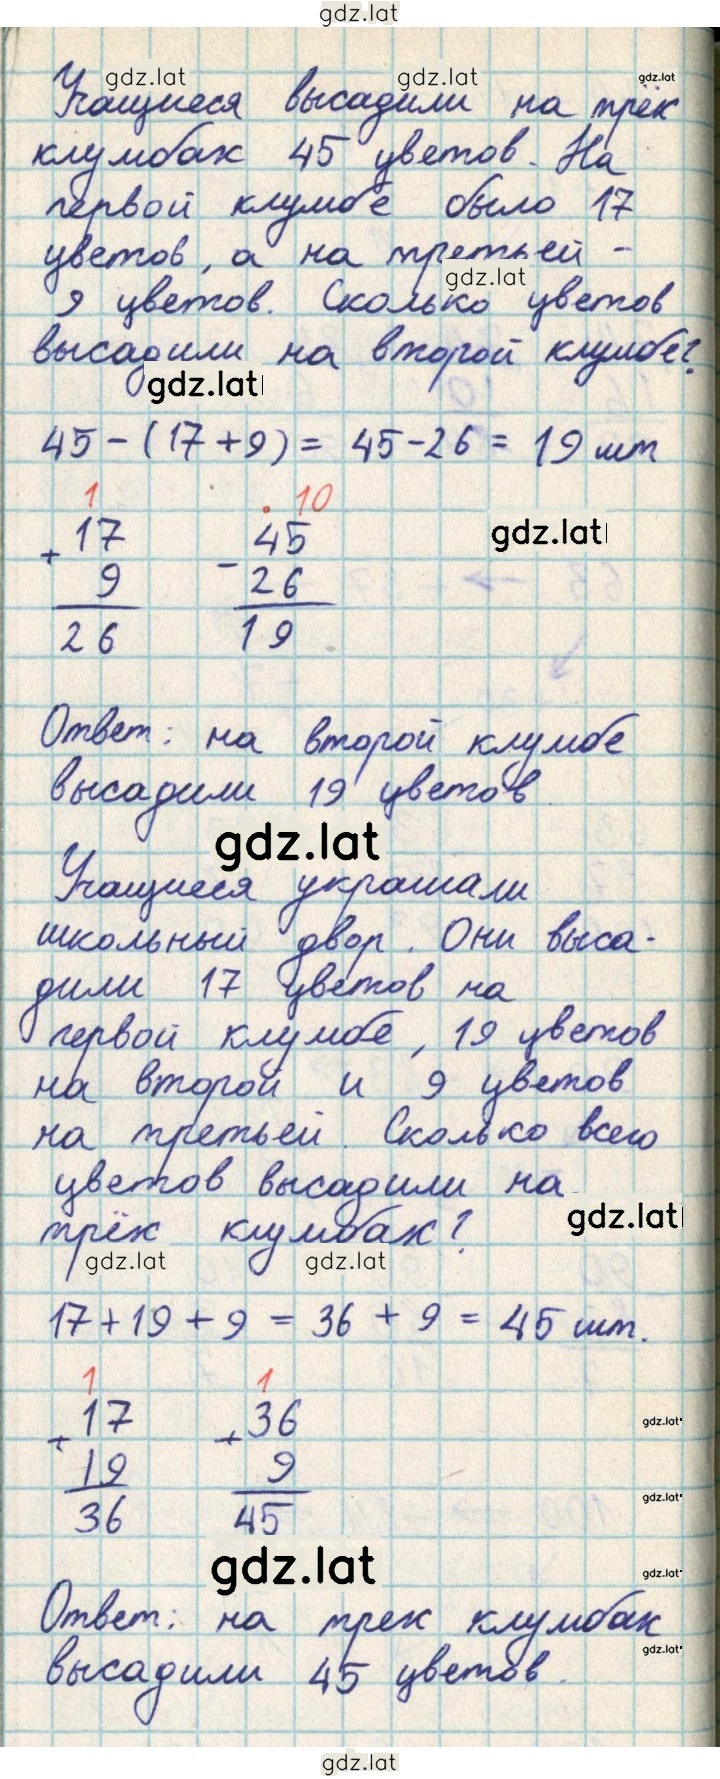 gdz.lat
gdz.lat gdz.lat gdz.lat
Учащиеся высадили на трёх
клумбах 45 цветов. На
первой клумбе было 17
цветов, а на третьей -
gdz.lat
9 цветов. Сколько цветов
высадили на второй клумбе?
gdz.lat
45 - (17 + 9) = 45 - 26 = 19 шт
1 . 10
17 45 gdz.lat
+ -
9 26
26 19
Ответ: на второй клумбе
высадили 19 цветов
gdz.lat
Учащиеся украшали
школьный двор. Они выса-
дили 17 цветов на
первой клумбе, 19 цветов
на второй и 9 цветов
на третьей. Сколько всего
цветов высадили на
gdz.lat
трёх клумбах?
gdz.lat gdz.lat
17 + 19 + 9 = 36 + 9 = 45 шт.
1 1
17 36 gdz.lat
+ +
19 9
gdz.lat
36 45
gdz.lat gdz.lat
Ответ: на трех клумбах
gdz.lat
высадили 45 цветов.
gdz.lat